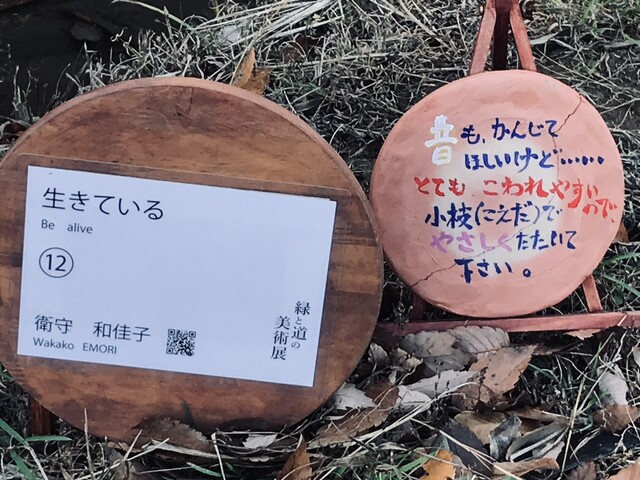 生きている
Be alive
12
衛守 和佳子
Wakako EMORI
緑と道の
美術展
音も、かんじて
ほしいけど……
とても こわれやすいので、
小枝(こえだ)で
やさしくたたいて
下さい。